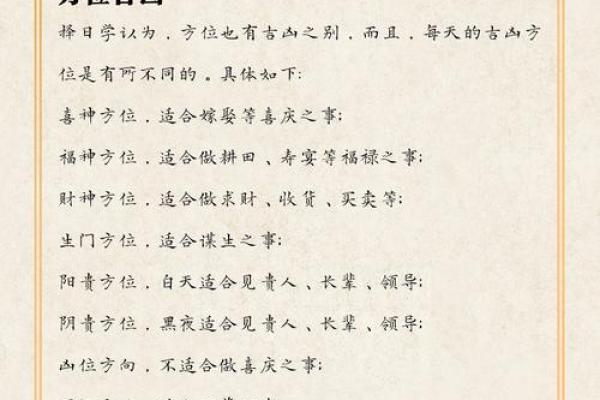 择日学认为，方位也有吉凶之别，而且，每天的吉凶方
位是有所不同的。具体如下:
喜神方位，适合嫁娶等喜庆之事;
福神方位，适合做耕田、寿宴等福禄之事;
财神方位，适合做求财、收货、买卖等;
生门方位，适合谋生之事;
阳贵方位，白天适合见贵人、长辈、领导;
阴贵方位，黑夜适合见贵人、长辈、领导;
凶位方向，不适合做喜庆之事;